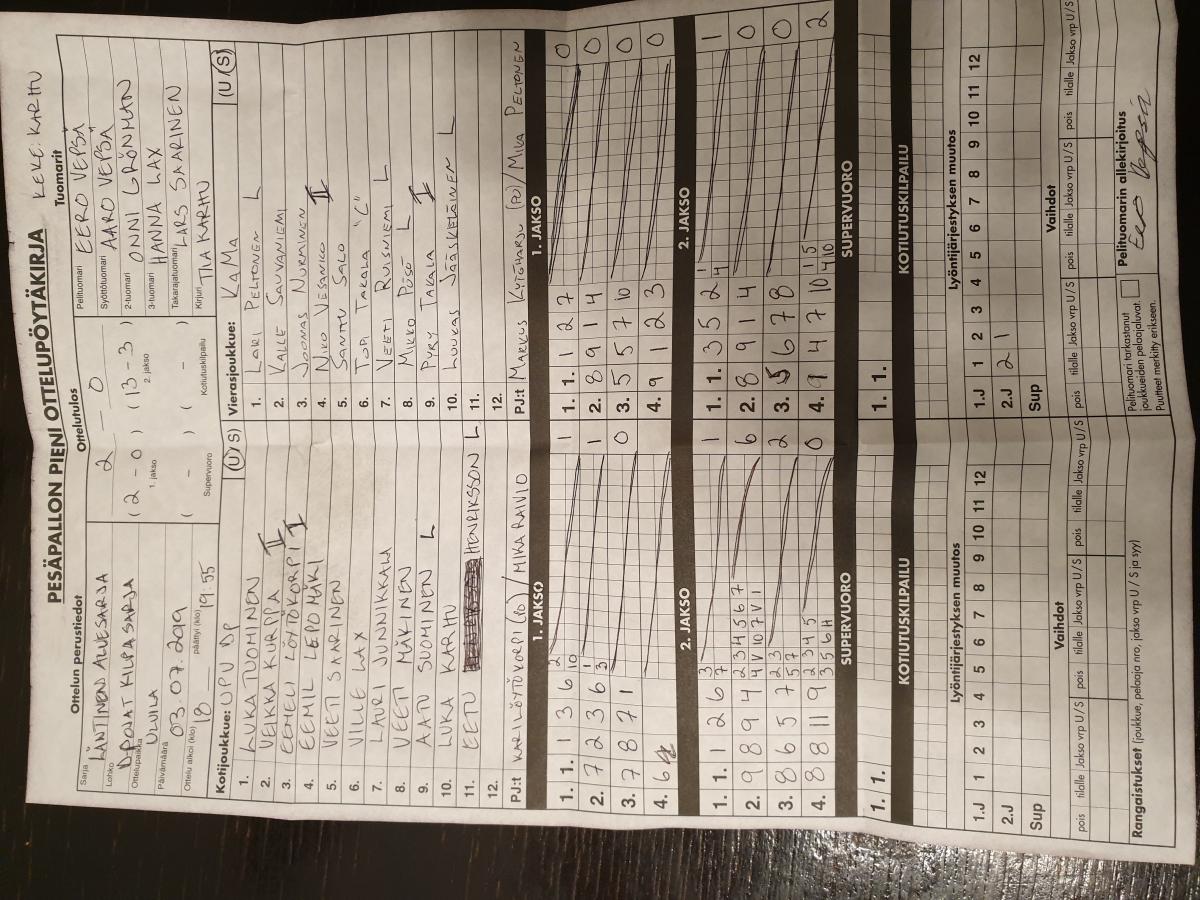 PESÄPALLON PIENI OTTELUPÖYTÄKIRJA KEKE: KARHU
Ottelun perustiedot
Sarja LÄNTINEN ALUESARJA
Lohko D-POJAT KILPASARJA
Ottelupaikka ULVILA
Päivämäärä 03.07.2019
Ottelu alkoi (klo) 18 päättyi (klo) 19:55
Ottelutulos
2 — 0
(2 – 0) (13 – 3)
1. jakso 2. jakso
( – ) ( – )
Supervuoro Kotiutuskilpailu
Tuomarit
Pelituomari EERO VEPSÄ
Syöttötuomari AARO VEPSÄ
2-tuomari ONNI GRÖNMAN
3-tuomari HANNA LAX
Takarajatuomari LARS SAARINEN
Kirjuri TKA KARHU
Kotijoukkue: ULPU DP (U/S)
1. LUKA TUOMINEN
2. VEIKKA KURPPA II
3. EEMELI LÖYTÖKORPI I
4. EEMIL LEPOMÄKI
5. VEETI SAARINEN
6. VILLE LAX
7. LAURI JUNNIKKALA
8. VEETI MÄKINEN
9. AATU SUOMINEN L
10. LUKA KARHU
11. EETU HENRIKSSON L
12.
PJ:t KARI LÖYTÖKORPI (PO) / MIKA RAIVIO
Vierasjoukkue: KAMA (U/S)
1. LARI PELTONEN L
2. KALLE SAUVANIEMI
3. JOONAS NURMINEN
4. NIKO VESANKO II
5. SANTTU SALO
6. TOPI TAKALA "C"
7. VEETI RUISNIEMI L
8. MIKKO PÖSÖ L
9. PYRY TAKALA I
10. LUUKAS JÄÄSKELÄINEN L
11.
12.
PJ:t MARKUS KYTÖHARJU (PJ) / MIKA PELTONEN
1. JAKSO
1. 1. 1 3 6 2 10 1
2. 7 2 3 6 1 3 1
3. 7 8 7 1 0
4. 6
1. JAKSO
1. 1. 1 2 7 0
2. 8 9 1 4 0
3. 5 5 7 10 0
4. 9 1 2 3 0
2. JAKSO
1. 1. 1 2 6 3 7 1
2. 9 8 9 4 2 3 4 5 6 7 4 V 10 7 V 1 6
3. 8 6 5 7 2 3 5 7 2
4. 8 8 11 9 2 3 4 5 3 5 6 H 0
2. JAKSO
1. 1. 3 5 2 1 4 1
2. 8 9 1 4 0
3. 5 6 7 8 0
4. 9 4 7 10 1 5 4 10 2
SUPERVUORO
1. 1.
SUPERVUORO
1. 1.
KOTIUTUSKILPAILU
KOTIUTUSKILPAILU
Lyöntijärjestyksen muutos
1.J 1 2 3 4 5 6 7 8 9 10 11 12
2.J
Sup
Lyöntijärjestyksen muutos
1.J 1 2 3 4 5 6 7 8 9 10 11 12
2.J 2 1
Sup
Vaihdot
pois tilalle Jakso vrp U/S pois tilalle Jakso vrp U/S pois tilalle Jakso vrp U/S
Vaihdot
pois tilalle Jakso vrp U/S pois tilalle Jakso vrp U/S pois tilalle Jakso vrp U/S
Rangaistukset (joukkue, pelaaja nro, jakso vrp U / S ja syy)
Pelituomari tarkastanut
joukkueiden pelaajaluvat.
Puutteet merkitty erikseen.
Pelituomarin allekirjoitus
Eero Vepsä